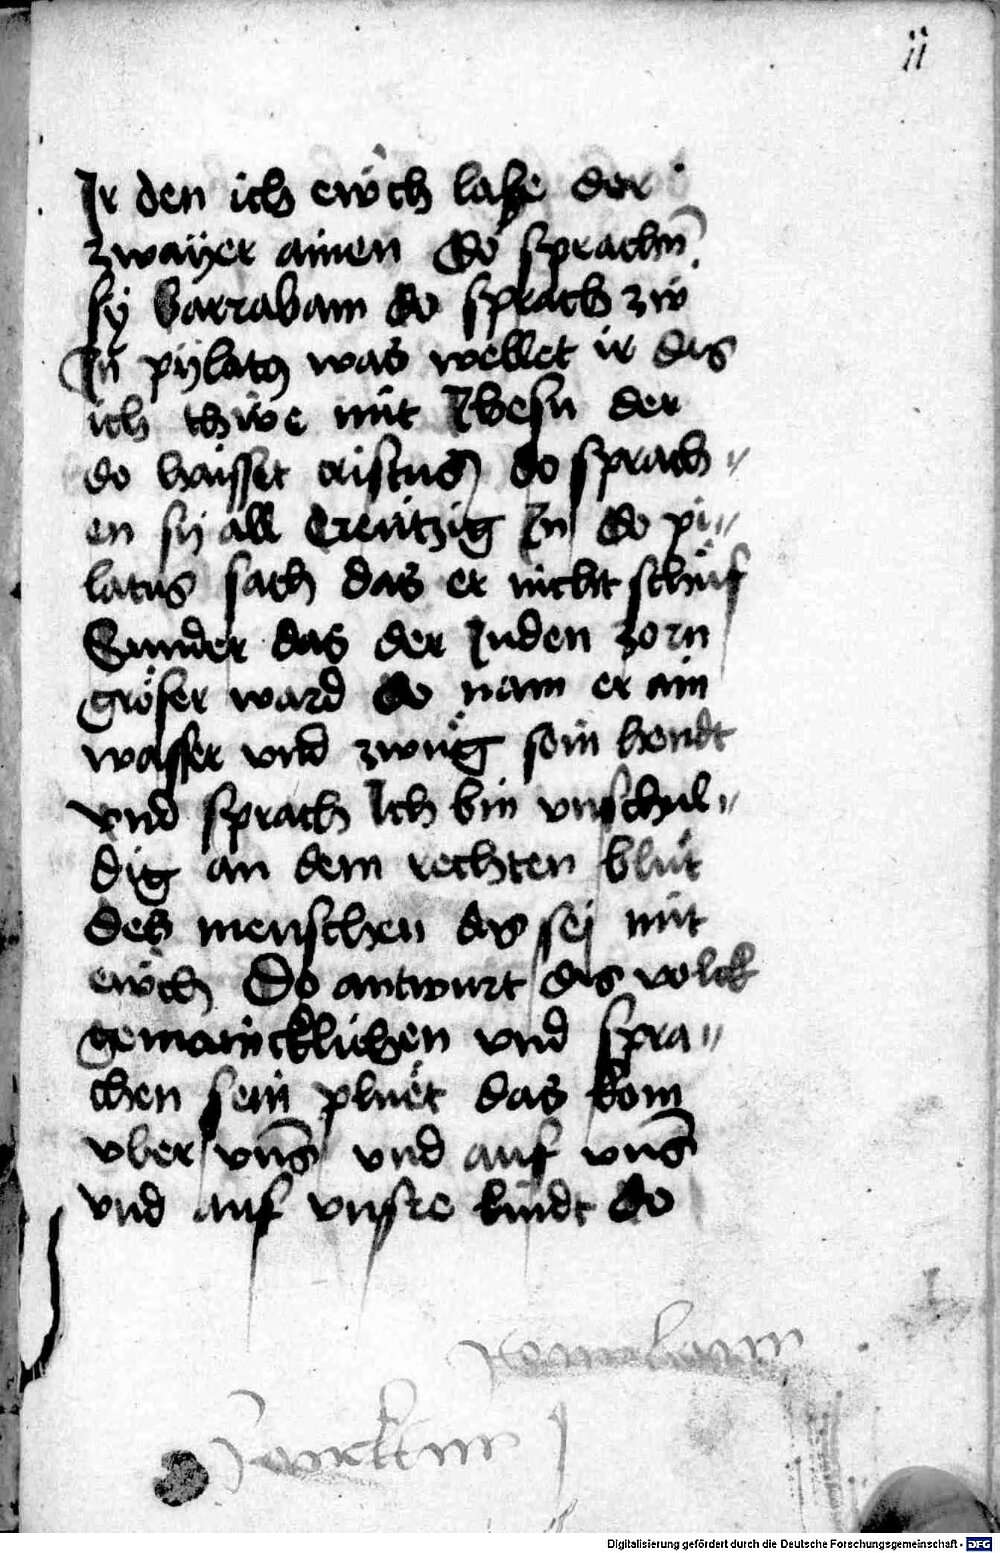 ii
Ir den ich ewch lasse der
zwaÿer ainen do sprachn̄
sÿ barrabam do sprach zw
In pÿlatus was wellet ir das
ich thwe mit Ihesu der
do haisset cristus do sprach„
en sÿ all Creutzig In do pi„
latus sach das er nicht schuf
Sunder das der Juden zorn
gröser ward do nam er ain
wasser vnd zwug sein hendt
vnd sprach Ich bin vnschul„
dig an dem rechten blut
des menschen das sei mit
ewch Do antwurt das volck
gemaincklichen vnd spra„
chen sein pluet das kom
vber vns vnd auf vns
vnd auf vnsre kindt do
Digitalisierung gefördert durch die Deutsche Forschungsgemeinschaft - DFG